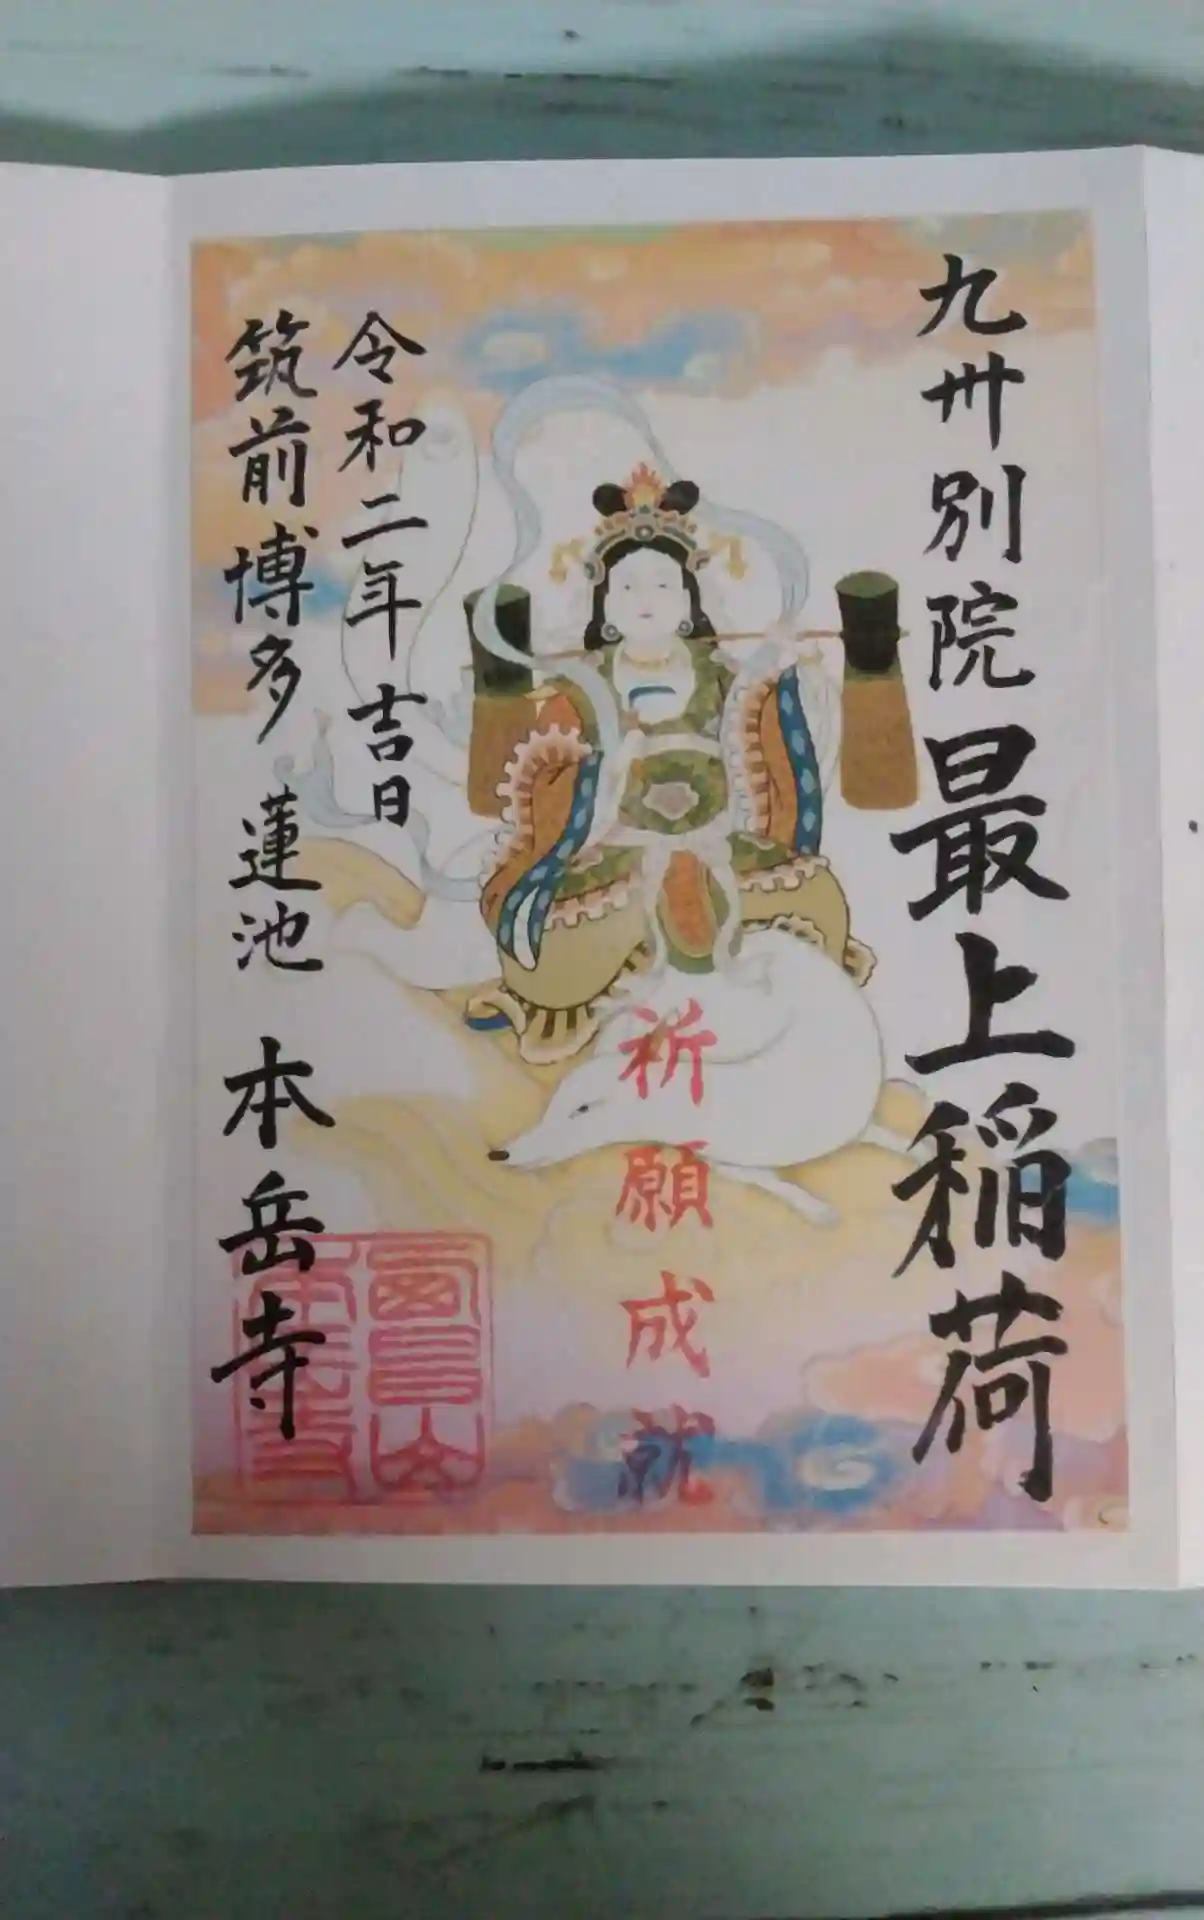 九州別院最上稲荷
祈願成就
令和二年吉日
筑前博多蓮池本岳寺